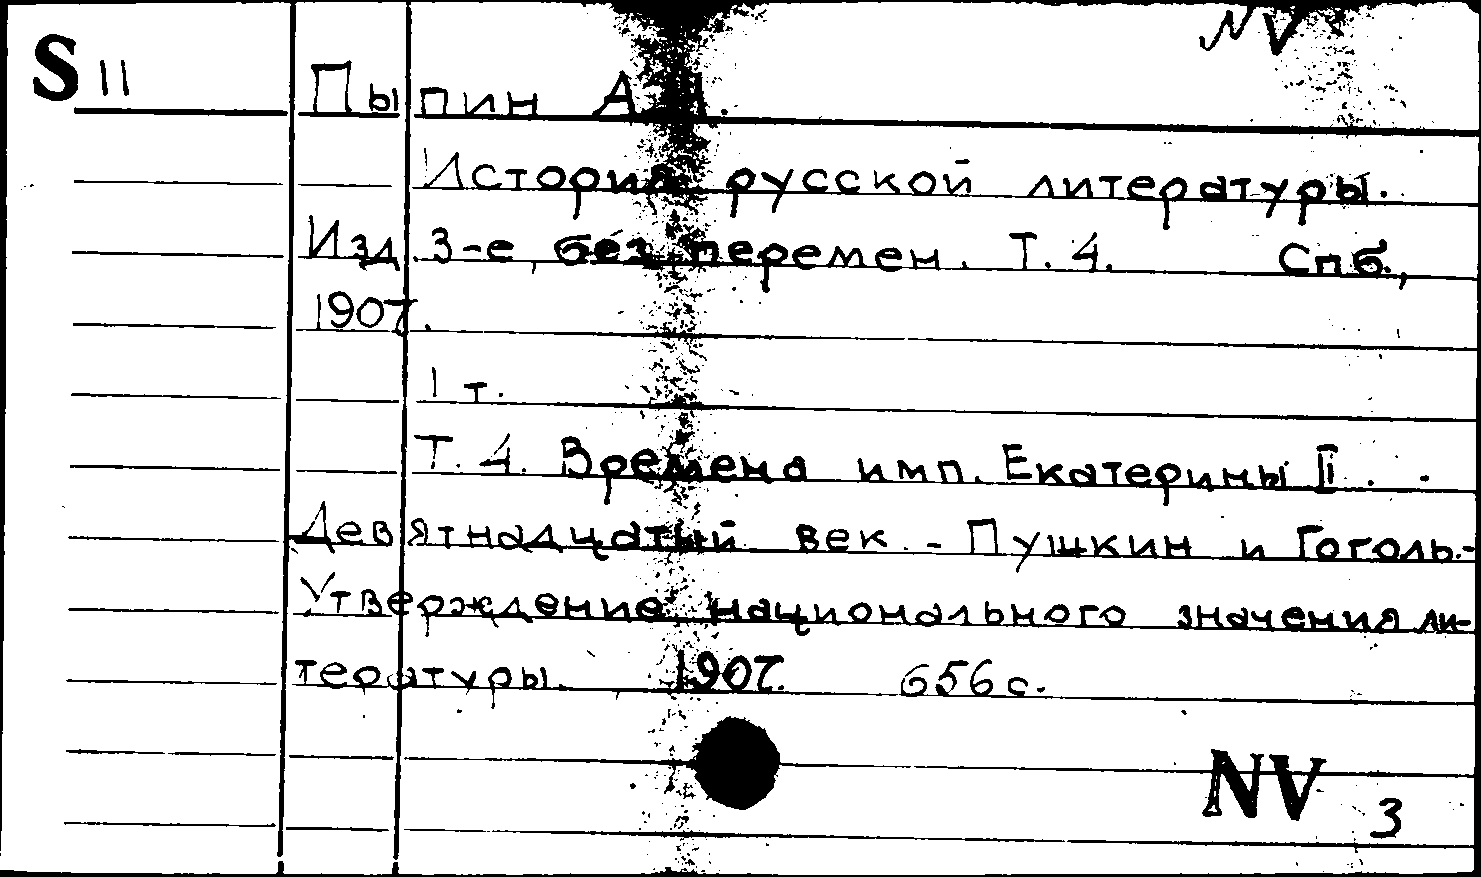 NV
S 11 Пыпин А. Н.
История русской литературы.
Изд. 3-е, без перемен. Т. 4. Спб.,
1907.
1 т.
Т. 4. Времена имп. Екатерины II. -
Девятнадцатый век. - Пушкин и Гоголь. -
Утверждение национального значения ли-
тературы. 1907. 656 с.
NV 3